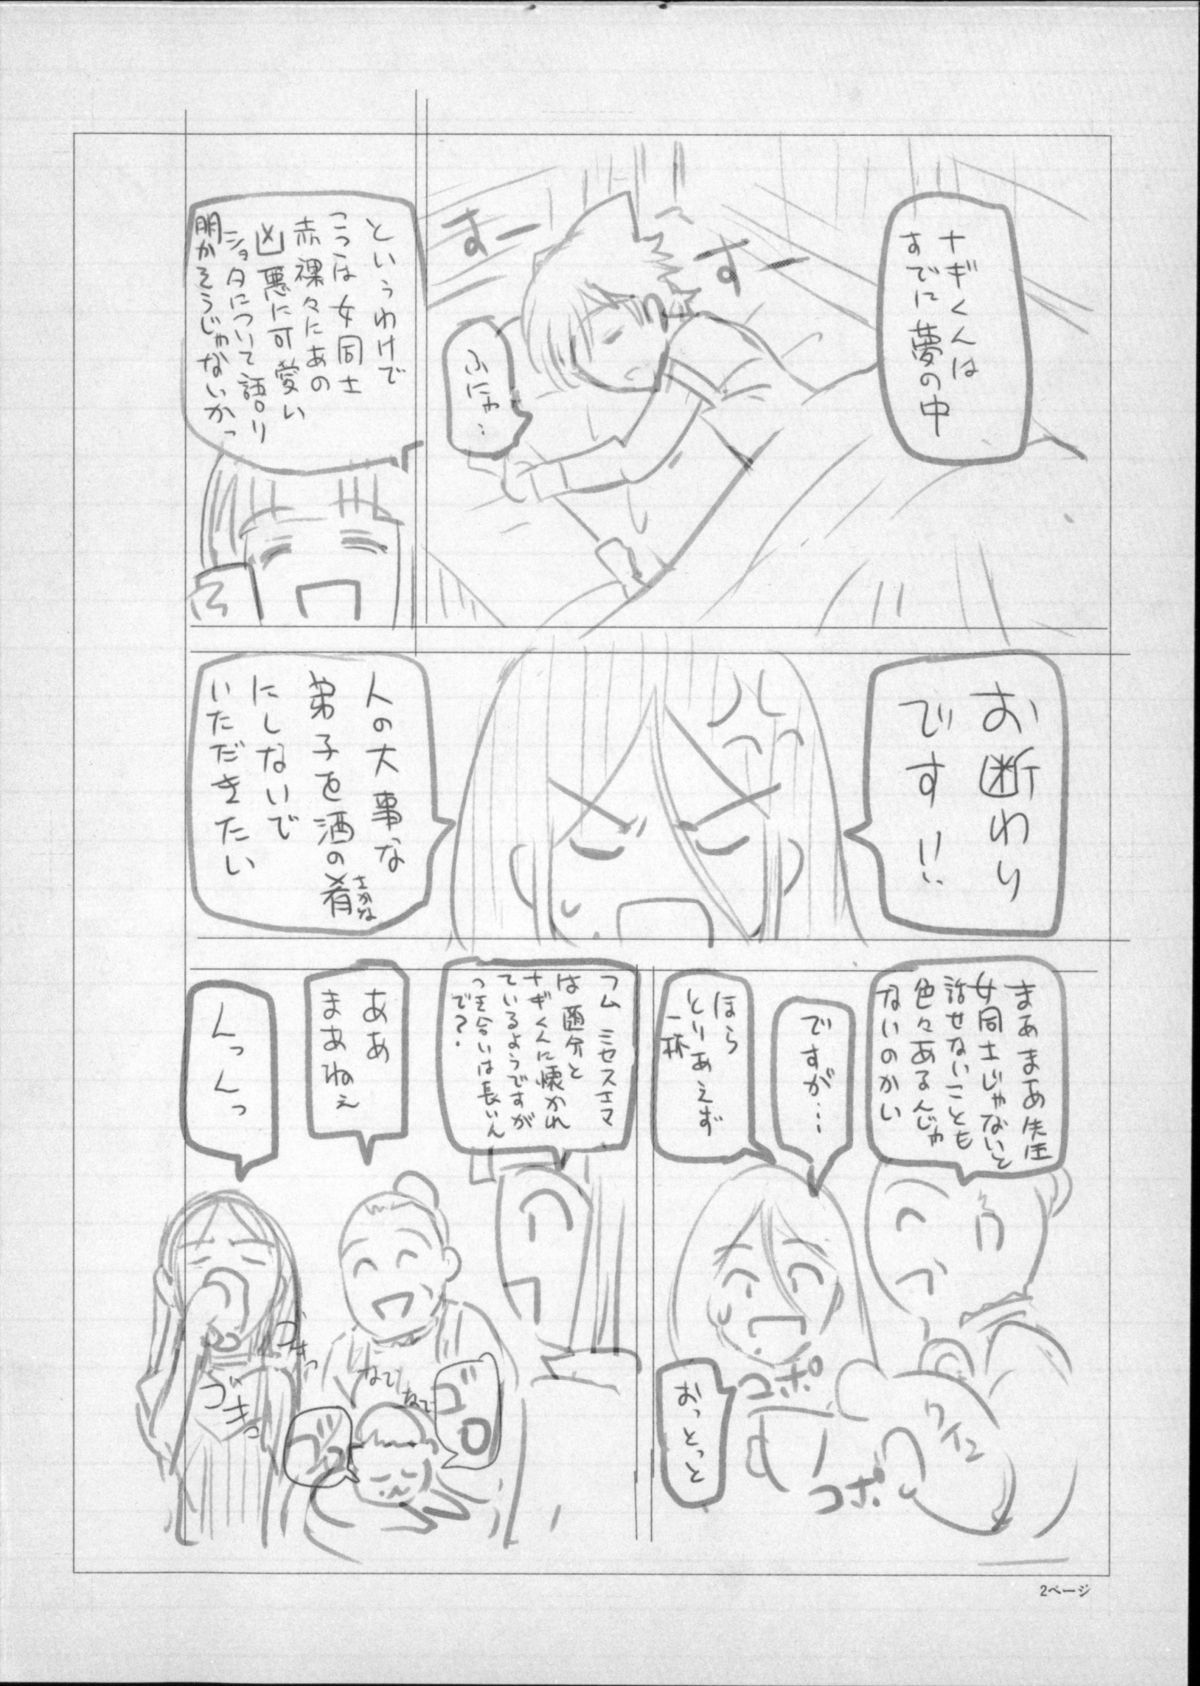 ナギくんは
すでに夢の中
すー
すー
ふにゃ…
というわけで
こっちは女同士
赤裸々にあの
凶悪に可愛い
ショタについて語り
明かそうじゃないかっ
お断わり
です!!
人の大事な
弟子を酒の肴
さかな
にしないで
いただきたい
まあまあ先生
女同士じゃないと
話せないことも
色々あるんじゃ
ないのかい
ですが…
ほら
とりあえず
一杯
おっとっと
コポ
コポ
ワイン
フム ミセスエマ
は随分と
ナギくんに懐かれ
ているようですが
つき合いは長いん
で?
ああ
まあねぇ
んっんっ
なで
なで
ゴロ
ゴロ
づきっ
2ページ